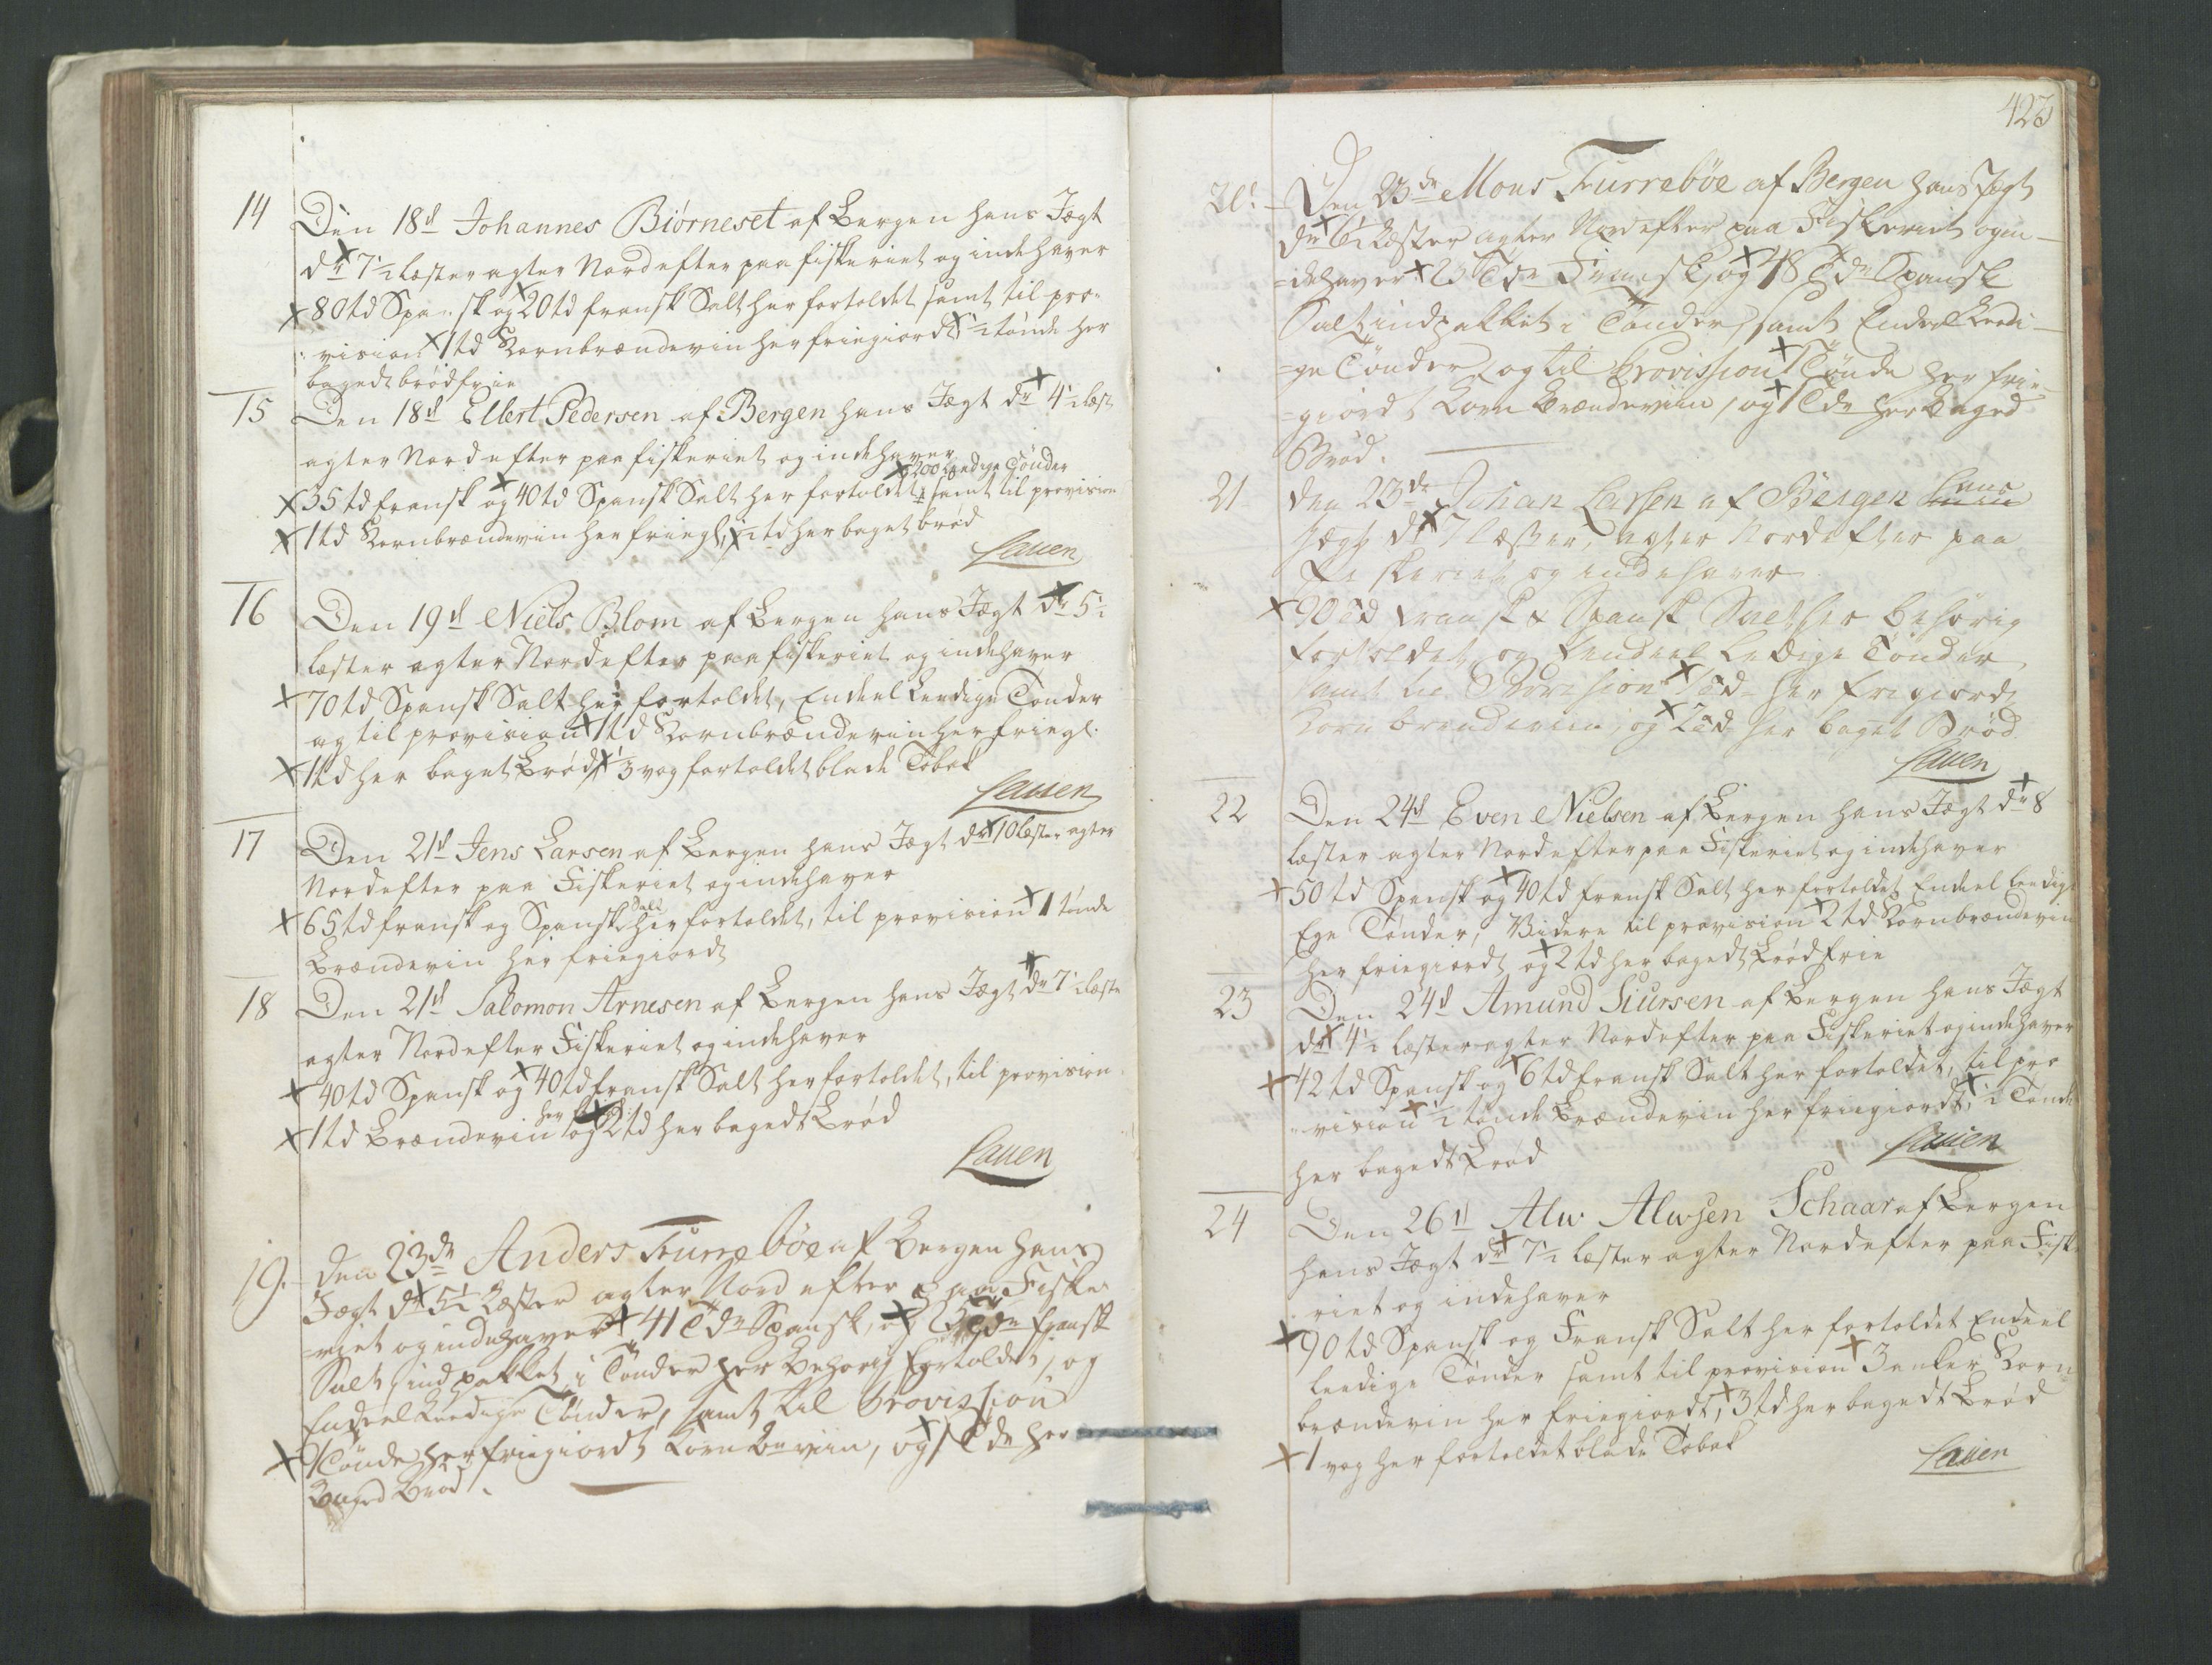 14
Den 18d Johannes Biörneset af Bergen hans Jægt
dr 7 1/2 læster agter Nordefter paa fiskeriet og indehaver
80 td Spansk og 20 td fransk Salt her fortoldet samt til pro-
vision 1 td Kornbrændeviin her friegiordt 1/2 tönde her
bagedt bröd frie
15
Den 18d Elbert Pedersen af Bergen hans Jægt dr 4 1/2 læst
agter Nordefter paa fiskeriet og indehaver
200 Leedige Tönder
35 td fransk og 40 td Spansk Salt her fortoldet samt til provision
1 td Kornbrændeviin her friegl, 1/2 td her baget bröd
Lauen
16
Den 19d Niels Blom af Bergen hans Jægt dr 5 1/2
læster agter Nordefter paa fiskeriet og indehaver
70 td Spansk Salt her fortoldet, Endeel Leedige Tönder
og til provision 1 td Kornbrændeviin her friegl.
1 td her baget Bröd 1/3 vog fortoldet blade Tobak
Lauen
17
Den 21d Jens Larsen af Bergen hans Jægt dr 10 læster agter
Nordefter paa Fiskeriet og indehaver
65 td fransk og Spansk Salt her fortoldet, til provision 1 tönde
Brændeviin her friegiordt
18
Den 21d Salomon Arnesen af Bergen hans Jægt dr 7 1/2 læste
agter Nordefter Fiskeriet og indehaver
40 td Spansk og 40 td fransk Salt her fortoldet, til provision
1 td Brændeviin her og 2 td her bagedt Bröd
Lauen
19.
den 23de Anders Furreböe af Bergen hans
Jægt dr 5 1/2 Læster agter Nord efter paa Fiske-
=riet og indehaver 41 Tdr Spansk, og Tdr fransk
Salt indpakket i Tönder her Behörig Fortoldet, og
Endeel Leedige Tönder, samt til Provission
1 Tönde her friegiordt Korn Br viin, og 1 Tde her
Baged Bröd.
423
20.
Den 23de Mons Furreböe af Bergen hans Jægt
dr 6 1/2 Læster agter Nordefter paa Fiskeriet og in-
=dehaver Tdr Fransk, og 48 Tdr Spansk
Salt indpakket i Tönder, samt Endeel Leedi-
=ge Tönder, og til Provission 1 Tönde her frie-
=giordt Korn Brændeviin, og 1 Tde her Baged
Bröd.
21
den 23de Johan Larssen af Bergen hans
Jægt dr 7 læster, agter Nordefter paa
Fiskeriet og indehaver
90 td fransk & Spansk Salt her behörig
fortoldet og Eendeel Ledige Tönder,
samt til Provision 1 td her frigiordt
Korn brændeviin, og 2 td her baget Bröd
Lauen
22
Den 24d Even Nielsen af Bergen hans Jægt dr 8
læster agter Nordefter paa Fiskeriet og indehaver
50 td Spansk og 40 td fransk Salt her fortoldet Endeel leedige
Ege Tönder, Videre til provision 2 td Kornbrændeviin
her friegiordt og 2 td her bagedt Bröd frie
23
Den 24d Amund Siursen af Bergen hans Jægt
dr 4 1/2 læster agter Nordefter paa Fiskeriet og indehaver
42 td Spansk og 6 td fransk Salt her fortoldet, til pro
vision 1/2 tönde Brændeviin her friegiordt, 1/2 Tönde
her bagedt Bröd
Lauen
24
Den 26d Alw Alwsen Schaar af Bergen
hans Jægt dr 7 1/2 læster agter Nordefter paa Fiske
riet og indehaver
90 td Spansk og Fransk Salt her fortoldet Endeel
leedige Tönder samt til provision 3 anker Korn-
brændeviin her friegiordt, 3 td her bagedt Bröd
1 vog her fortoldet blade Tobak
Lauen